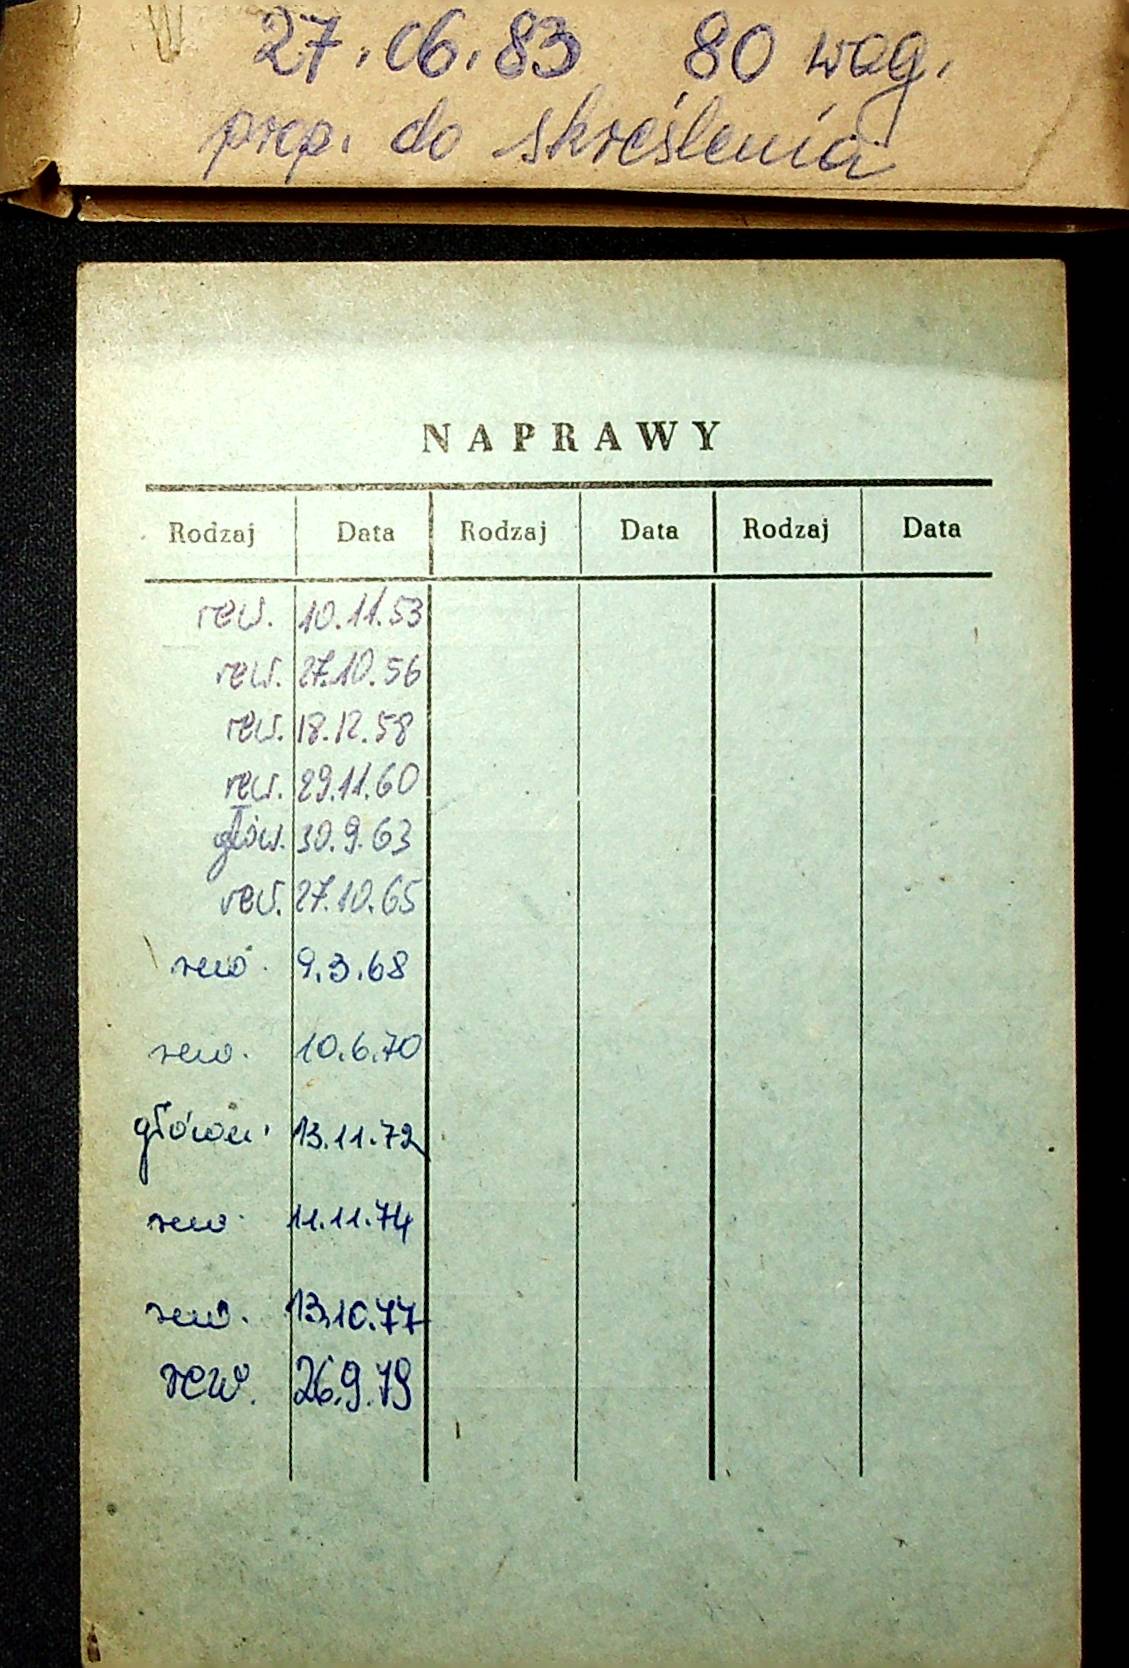 27.06.83 80 wag.
prep. do skreślenia
NAPRAWY
Rodzaj Data Rodzaj Data Rodzaj Data
rew. 10.11.53
rew. 27.10.56
rew. 18.12.58
rew. 29.11.60
głów. 30.9.63
rew. 27.10.65
rew. 9.3.68
rew. 10.6.70
główn. 13.11.72
rew. 11.11.74
rew. 13.10.77
rew. 26.9.79